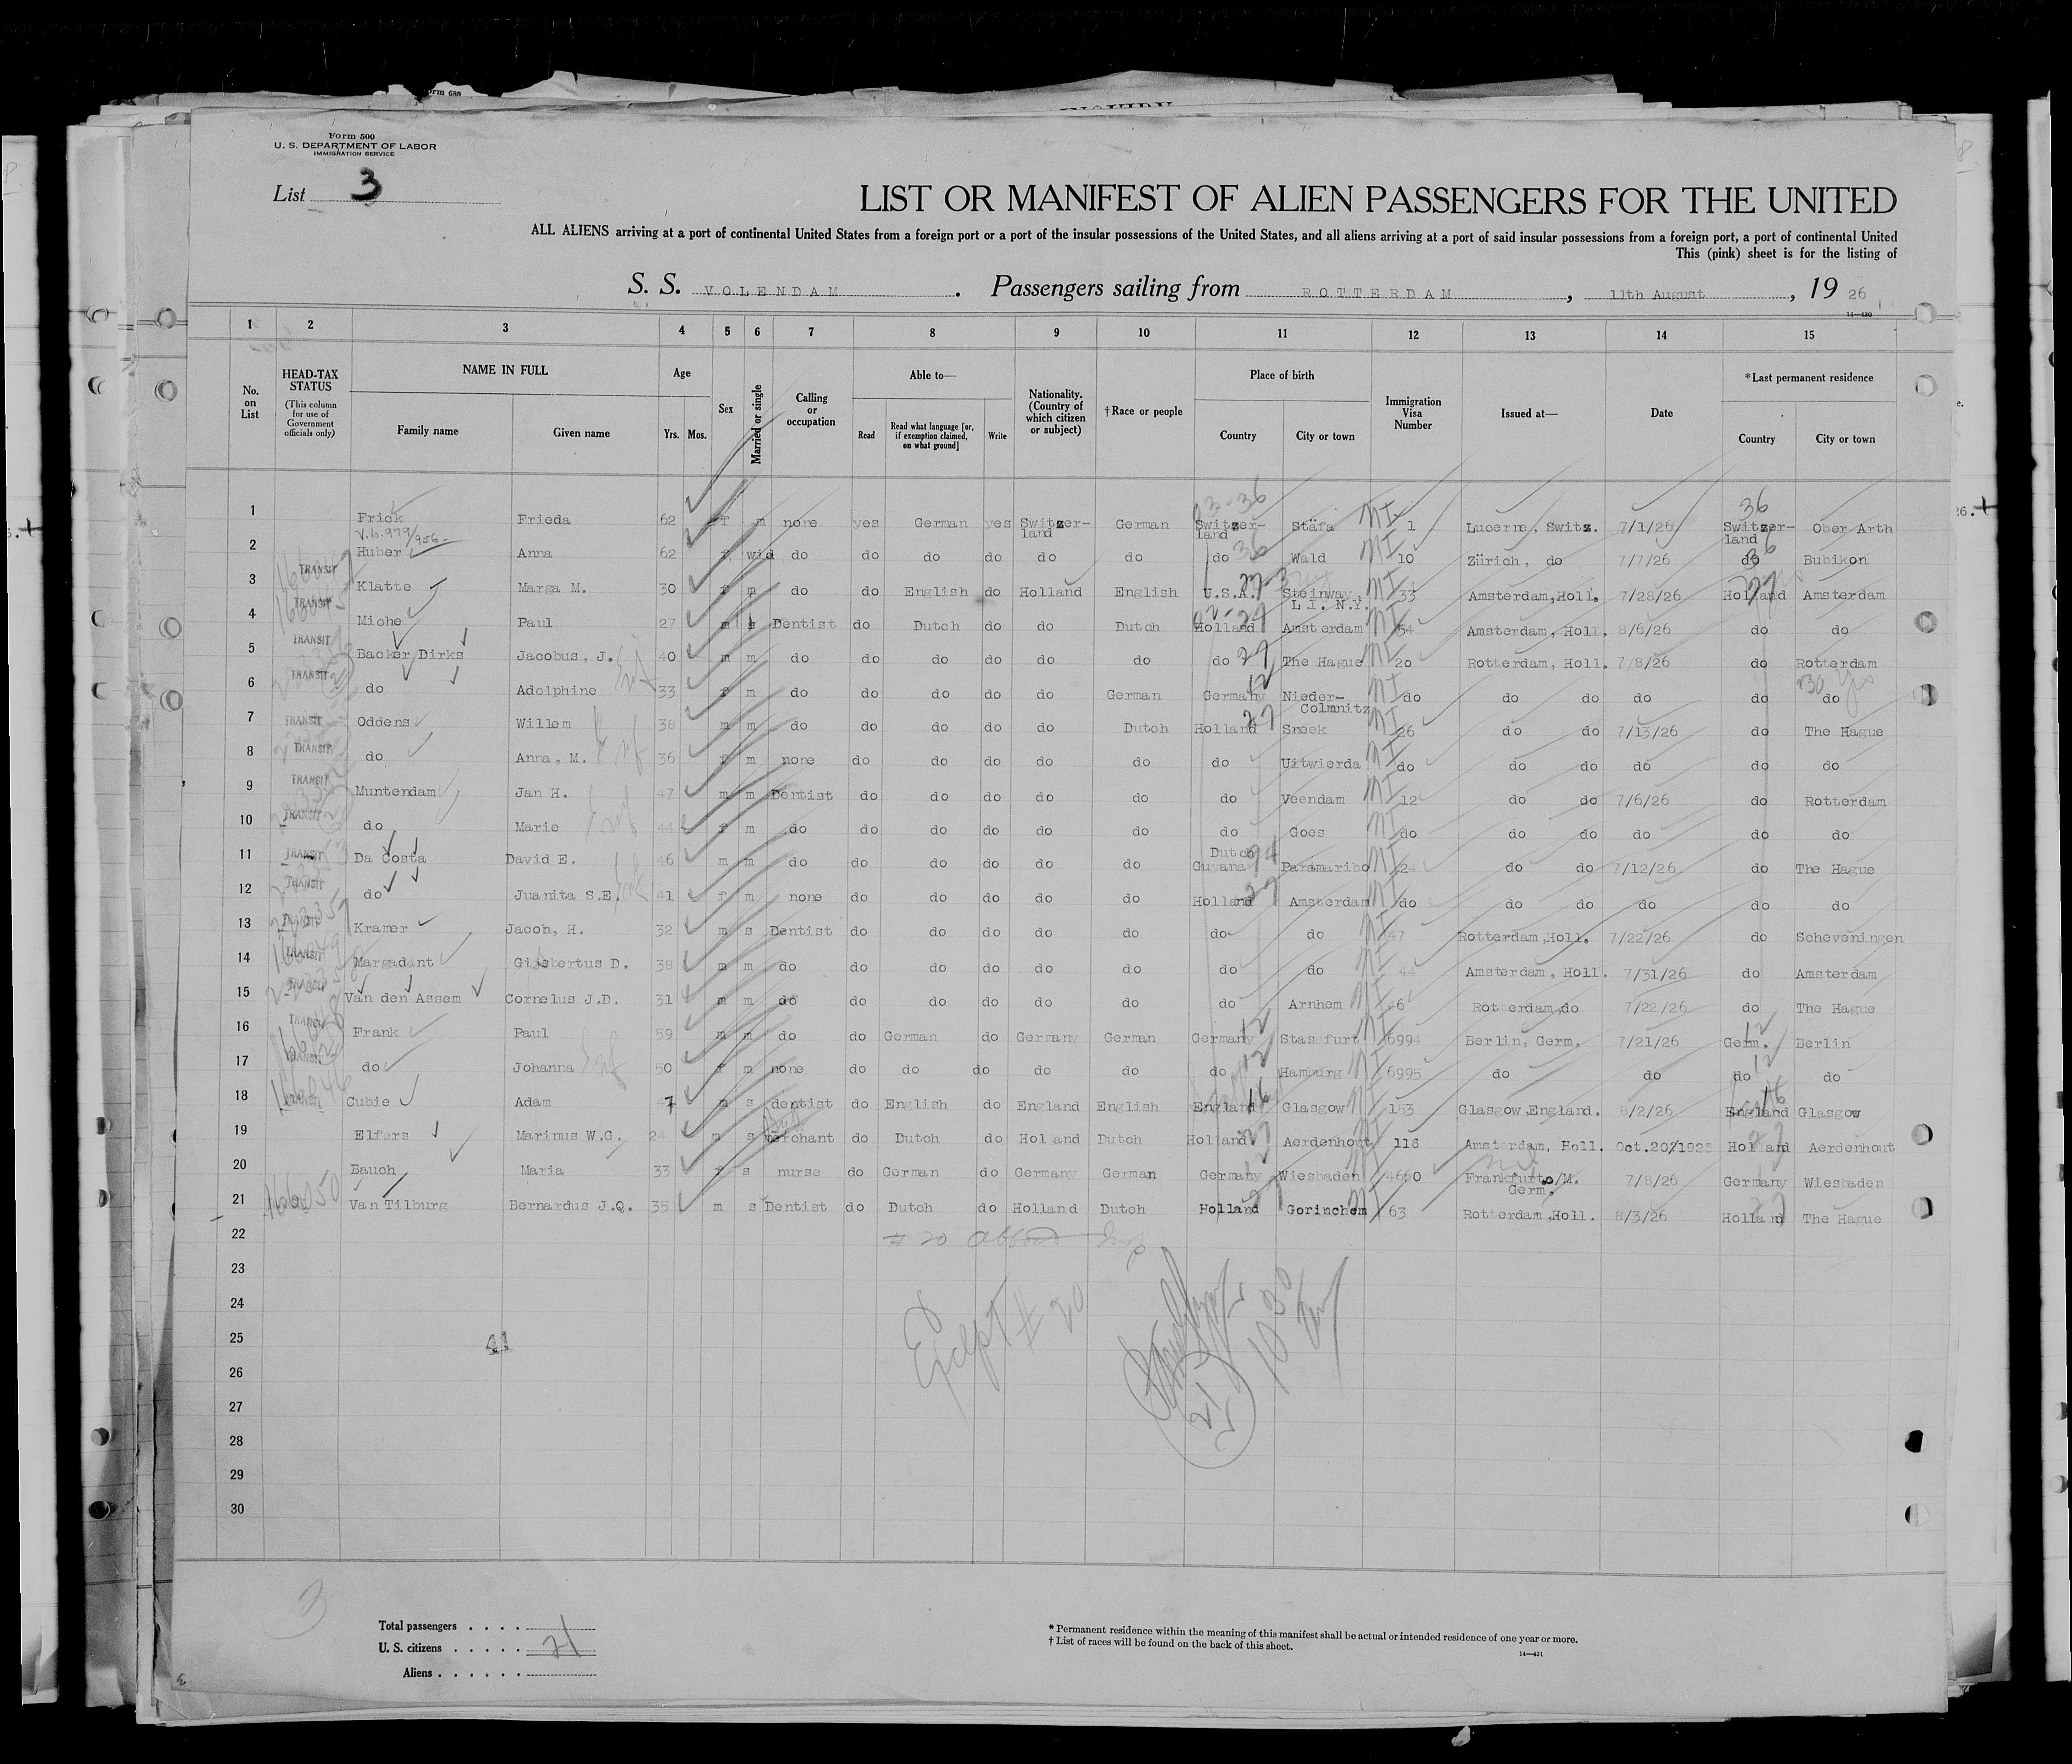 Form 500
U. S. DEPARTMENT OF LABOR
IMMIGRATION SERVICE
List 3
LIST OR MANIFEST OF ALIEN PASSENGERS FOR THE UNITED
ALL ALIENS arriving at a port of continental United States from a foreign port or a port of the insular possessions of the United States, and all aliens arriving at a port of said insular possessions from a foreign port, a port of continental United
This (pink) sheet is for the listing of
S. S. VOLENDAM. Passengers sailing from ROTTERDAM, 11th August, 19 26
14—430
1 2 3 4 5 6 7 8 9 10 11 12 13 14 15
No. on List
HEAD-TAX STATUS (This column for use of Government officials only)
NAME IN FULL
Family name Given name
Age
Yrs. Mos.
Sex
Married or single
Calling or occupation
Able to—
Read Read what language [or, if exemption claimed, on what ground] Write
Nationality. (Country of which citizen or subject)
†Race or people
Place of birth
Country City or town
Immigration Visa Number
Issued at—
Date
*Last permanent residence
Country City or town
1 Frick Frieda 62 f m none yes German yes Switzer-land German Switzer-land Stäfa 1 Lucerne, Switz. 7/1/26 Switzer-land Ober Arth
2 Huber Anna 62 f wid do do do do do do do Wald 10 Zürich, do 7/7/26 do Bubikon
3 TRANSIT Klatte Marga M. 30 f m do do English do Holland English U.S.A. Steinway, L.I. N.Y. 33 Amsterdam,Holl. 7/28/26 Holland Amsterdam
4 TRANSIT Miche Paul 27 m s Dentist do Dutch do do Dutch Holland Amsterdam 54 Amsterdam, Holl. 8/6/26 do do
5 TRANSIT Backer Dirks Jacobus, J. 40 m m do do do do do do do The Hague 20 Rotterdam, Holl. 7/8/26 do Rotterdam
6 TRANSIT do Adolphine 33 f m do do do do do German Germany Nieder-Colmnitz do do do do do do
7 TRANSIT Oddens Willem 38 m m do do do do do Dutch Holland Sneek 26 do do 7/13/26 do The Hague
8 TRANSIT do Anna, M. 36 f m none do do do do do do Uitwierda do do do do do do
9 TRANSIT Munterdam Jan H. 47 m m Dentist do do do do do do Veendam 12 do do 7/6/26 do Rotterdam
10 TRANSIT do Marie 44 f m do do do do do do do Goes do do do do do do
11 TRANSIT Da Costa David E. 46 m m do do do do do do Dutch Guyana Paramaribo 24 do do 7/12/26 do The Hague
12 TRANSIT do Juanita S.E. 41 f m none do do do do do Holland Amsterdam do do do do do do
13 TRANSIT Kramer Jacob, H. 32 m s Dentist do do do do do do do 47 Rotterdam,Holl. 7/22/26 do Scheveningen
14 TRANSIT Margadant Gijsbertus D. 38 m m do do do do do do do do 44 Amsterdam, Holl. 7/31/26 do Amsterdam
15 TRANSIT Van den Assem Cornelus J.D. 31 m m do do do do do do do Arnhem 46 Rotterdam,do 7/22/26 do The Hague
16 TRANSIT Frank Paul 59 m m do do German do Germany German Germany Stassfurt 6994 Berlin, Germ. 7/21/26 Germ. Berlin
17 TRANSIT do Johanna 50 f m none do do do do do do Hamburg 6995 do do do do
18 Cubie Adam 47 m s dentist do English do England English England Glasgow 153 Glasgow,England. 8/2/26 England Glasgow
19 Elfers Marinus W.G. 24 m s merchant do Dutch do Holland Dutch Holland Aerdenhout 116 Amsterdam, Holl. Oct.20/1925 Holland Aerdenhout
20 Bauch Maria 33 f s nurse do German do Germany German Germany Wiesbaden 4660 Frankfurt o/M. Germ. 7/8/26 Germany Wiesbaden
21 Van Tilburg Bernardus J.Q. 35 m s Dentist do Dutch do Holland Dutch Holland Gorinchem 63 Rotterdam,Holl. 8/3/26 Holland The Hague
22
23
24
25
26
27
28
29
30
Except # 20
41
3
Total passengers
U. S. citizens 21
Aliens
* Permanent residence within the meaning of this manifest shall be actual or intended residence of one year or more.
† List of races will be found on the back of this sheet.
14—431